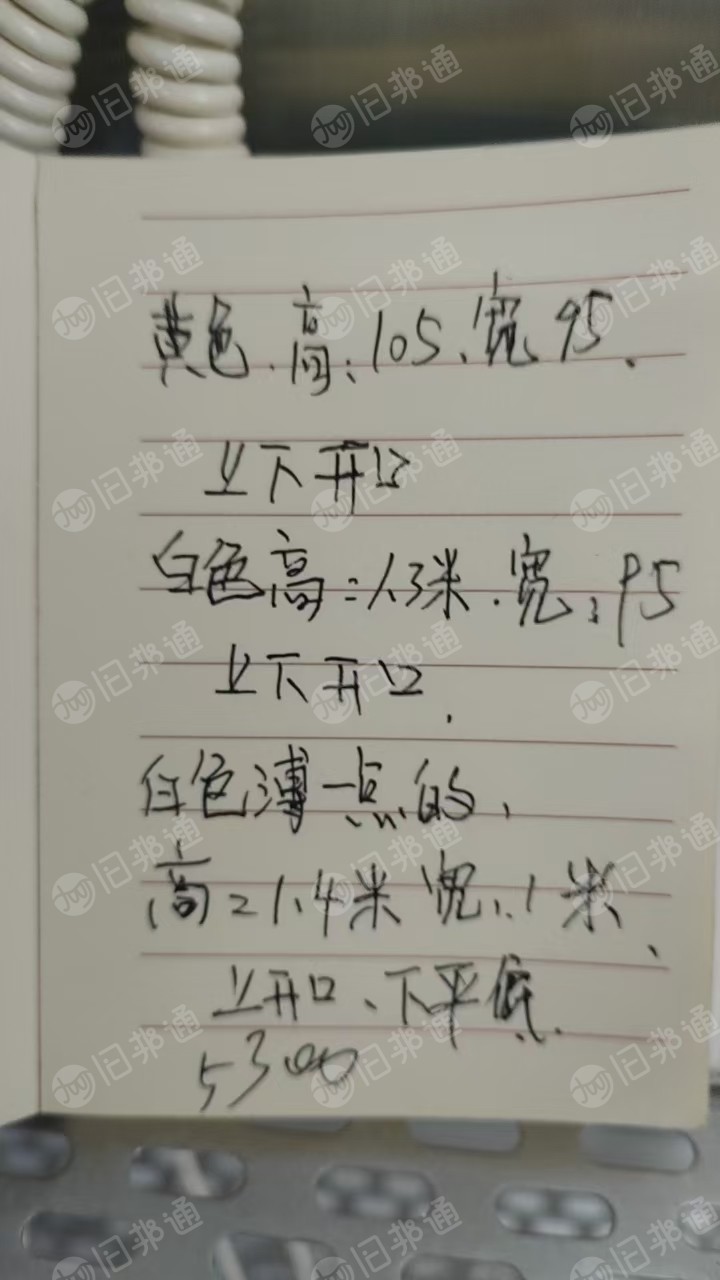 黄色.高:105、宽95、
上下开口
白色高:1.3米.宽:95
上下开口.
白色薄一点的,
高:1.4米宽:1米、
上开口、下平底.
5300
旧邦通